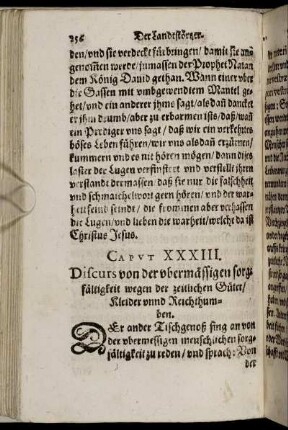 256 Der Landstörtzer.
den/ vnd sie verdeckt fürbringen/ damit sie ang
genommen werde/ inmassen der Prophet Natan
dem König Dauid gethan. Wann einer vber
die Gassen mit vmbgewendtem Mantel ge-
het/ vnd ein anderer ihms sagt/ alsdañ dancket
er ihm drumb/ aber zu erbarmen ists/ daß/ wañ
ein Prediger vns sagt/ daß wir ein verkehrtes
böses Leben führen/ wir vns alsdañ erzürnen/
kummern vnd es nit hören mögen/ dann dises
laster der Lugen verfinstret vnd verstellt ihren
verstandt dermassen/ daß sie nur die falschheit
vnd schmaichelwort gern hören/ vnd der war-
heit feind seind/ die frommen aber verhassen
die Lugen/ vnd lieben die warheit/ welche da ist
Christus Jesus.
CAPVT XXXIII.
Discurs von der vbermässigen sorg-
fältigkeit wegen der zeitlichen Güter/
Kleider vnnd Reichthum-
ben.
DEr ander Tischgenoß fing an von
der vbermessigen menschlichen sorg-
fältigkeit zu reden/ vnd sprach: Von
der